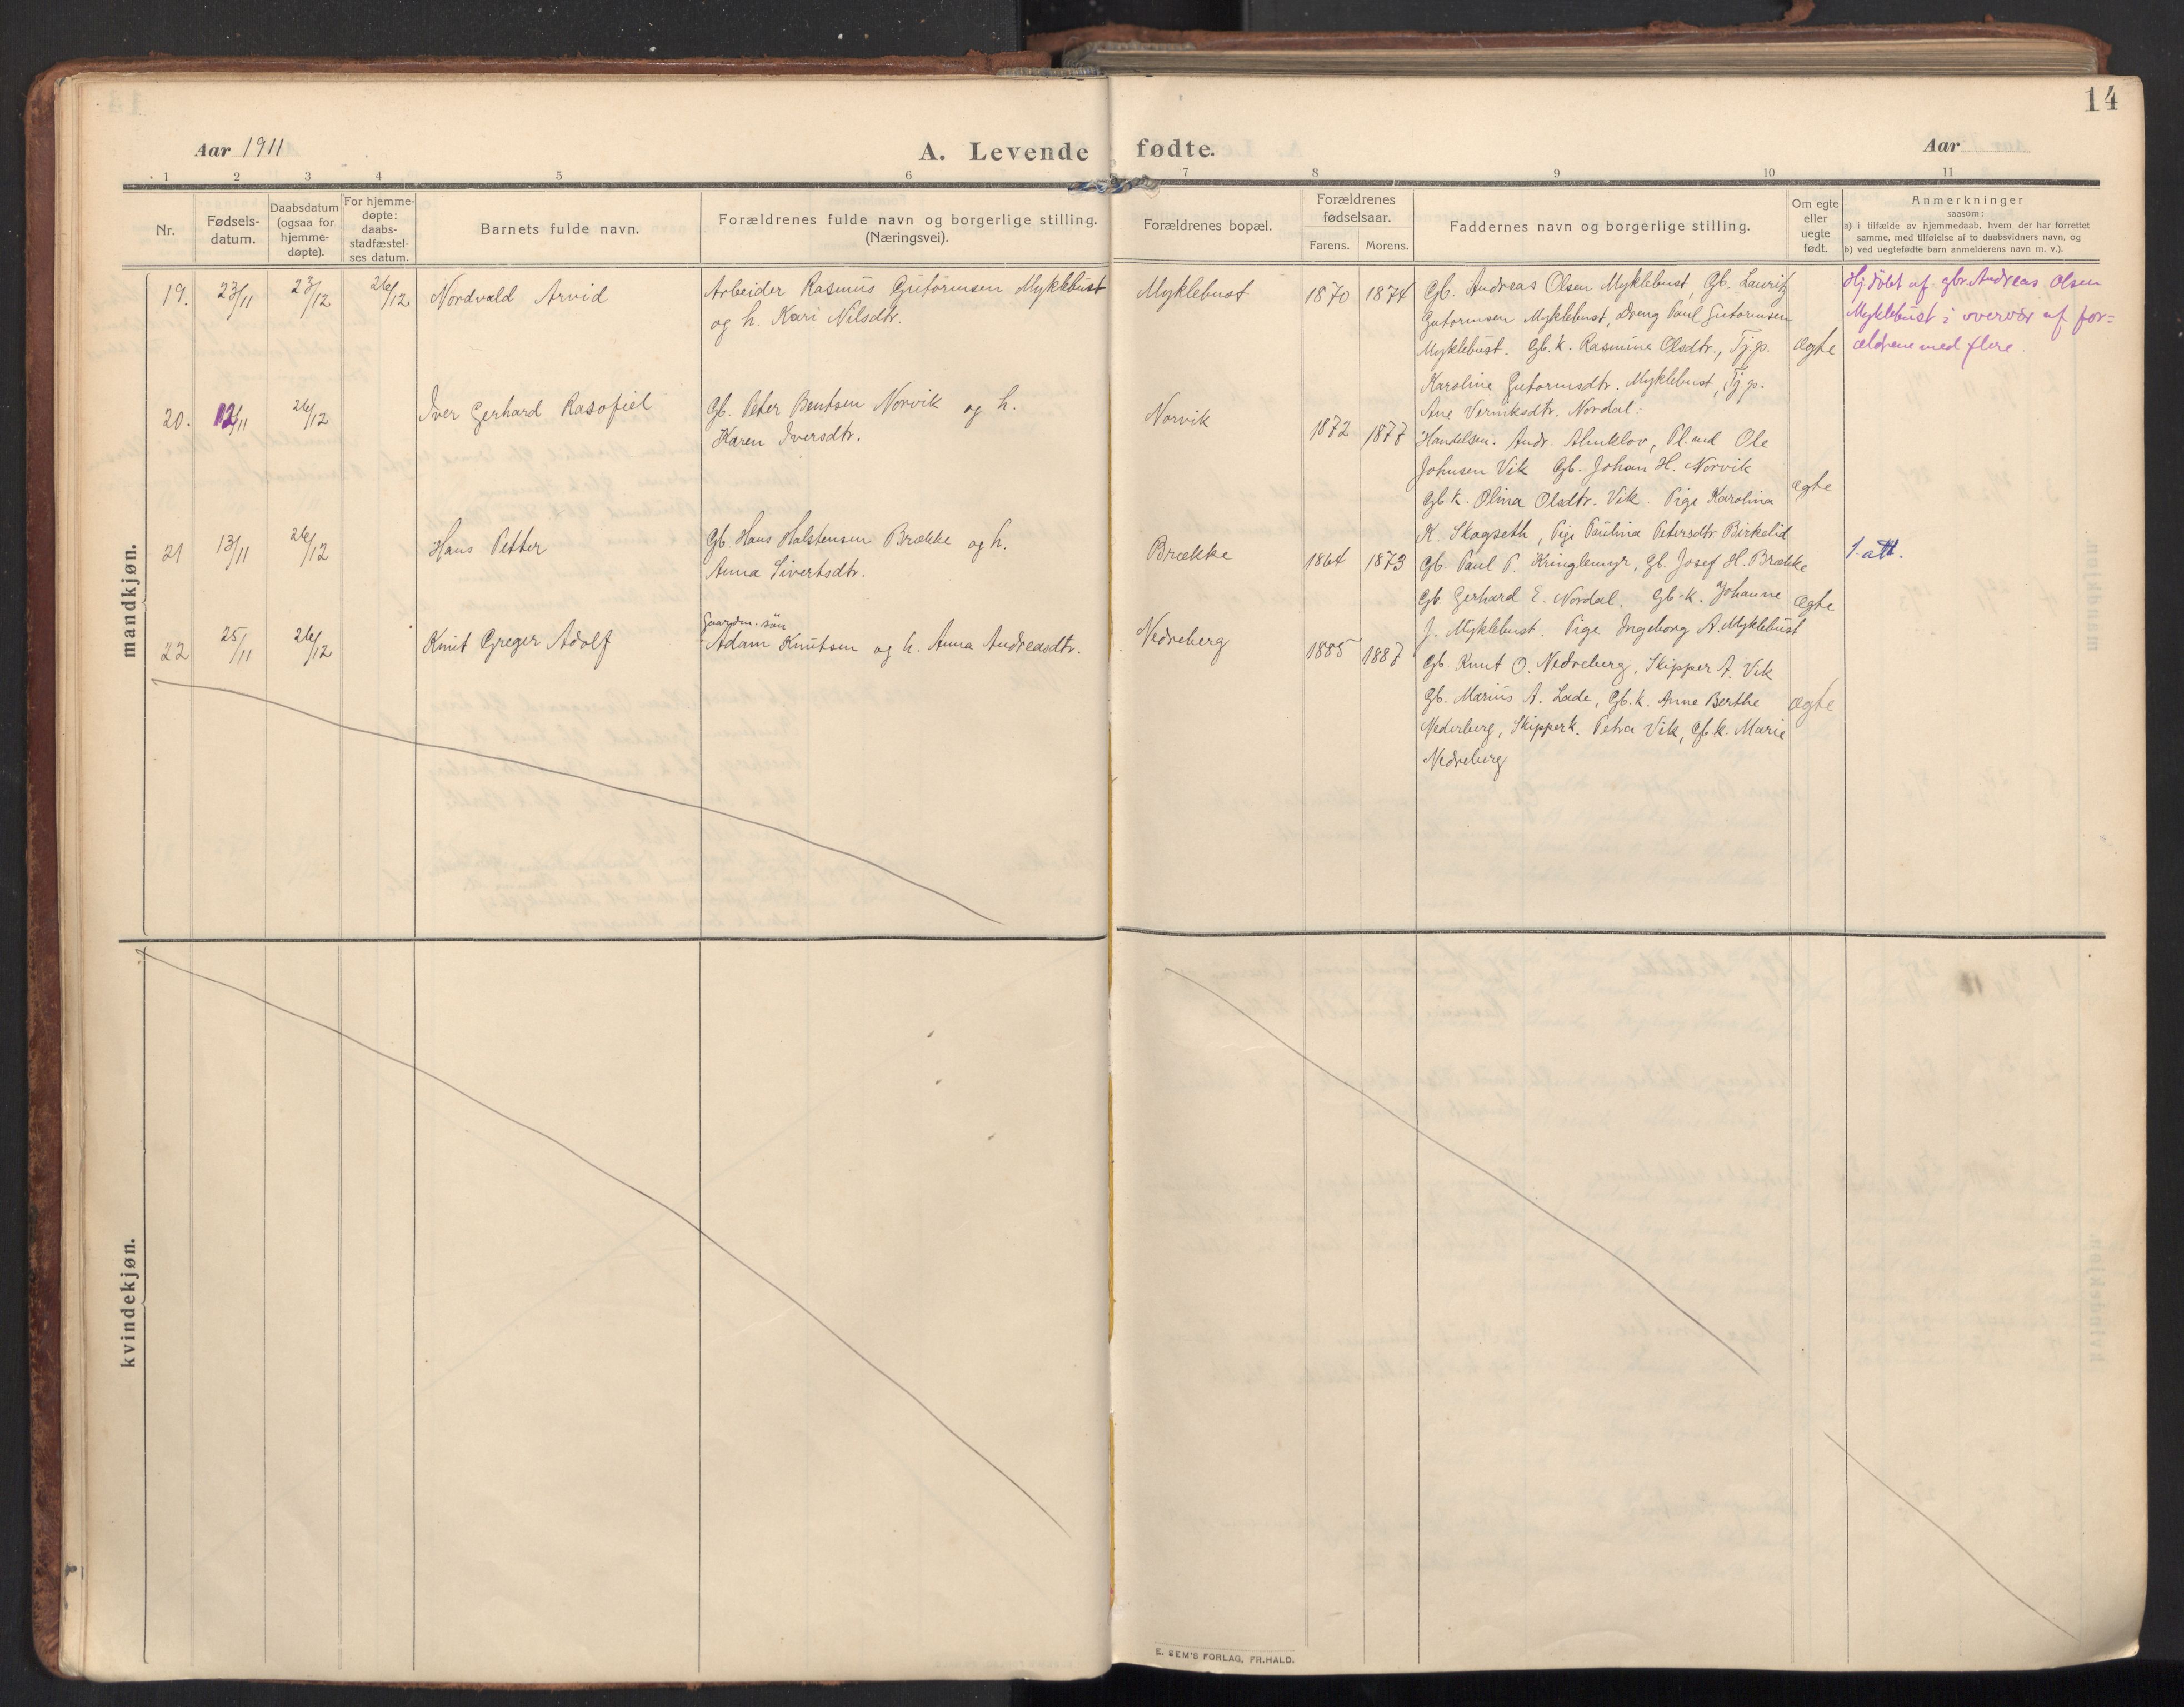 14
Aar 1911
A. Levende fødte.
Aar
1 2 3 4 5 6 7 8 9 10 11
Nr.
Fødsels-
datum.
Daabsdatum
(ogsaa for
hjemme-
døpte).
For hjemme-
døpte:
daabs-
stadfæstel-
ses datum.
Barnets fulde navn.
Forældrenes fulde navn og borgerlige stilling.
(Næringsvei).
Forældrenes bopæl.
Forældrenes
fødselsaar.
Farens. Morens.
Faddernes navn og borgerlige stilling.
Om egte
eller
uegte
født.
Anmerkninger
saasom:
a) i tilfælde av hjemmedaab, hvem der har forrettet
samme, med tilføielse af to daabsvidners navn, og
b) ved uegtefødte barn anmelderens navn m. v.).
mandkjøn.
19. 23/11 23/12 26/12 Nordvald Arvid
Arbeider Rasmus Guttormsen Myklebust
og h. Kari Nilsdtr.
Myklebust 1870 1874
Gb. Andreas Olsen Myklebust, Gb. Lauritz
Gutormsen Myklebust, Dreng Paul Gutormsen
Myklebust. Gb.k. Rasmine Olsdtr., Tj.p.
Karoline Gutormsdtr. Myklebust, Tj.p.
Ane Verniksdtr. Nordal.
Ægte
Hj.döbt af gbr. Andreas Olsen
Myklebust i overvær af for=
ældrene med flere.
20. 12/11 26/12 Iver Gerhard Rasofiel
Gb. Peter Bentsen Norvik og h.
Karen Iversdtr.
Norvik 1872 1877
Handelsm. Andr. Almklov, Pl.md Ole
Johnsen Vik Gb. Johan H. Norvik
Gb.k. Olina Olsdtr. Vik. Pige Karolina
K. Skogseth, Pige Paulina Petersdtr Birkelid
ægte
21 13/11 26/12 Hans Petter
Gb. Hans Halstensen Brække og h.
Anna Sivertsdtr.
Brække 1864 1873
Gb. Paul P. Kringlemyr, Gb. Josef H. Brække
Gb. Gerhard E. Nordal. Gb.k. Johanne
J. Myklebust. Pige Ingeborg A. Myklebust
Ægte
1. att.
22 25/11 26/12 Knut Greger Adolf
Gaardm. sön
Adam Knutsen og h. Anna Andreasdtr.
Nedreberg 1885 1887
Gb. Knut O. Nedreberg, Skipper A. Vik
Gb. Marius A. Lade, Gb.k. Anne Berthe
Nederberg, Skipperk. Petra Vik, Gb.k. Marie
Nedreberg
ægte
kvindekjøn.
E. SEM'S FORLAG, FR.HALD.